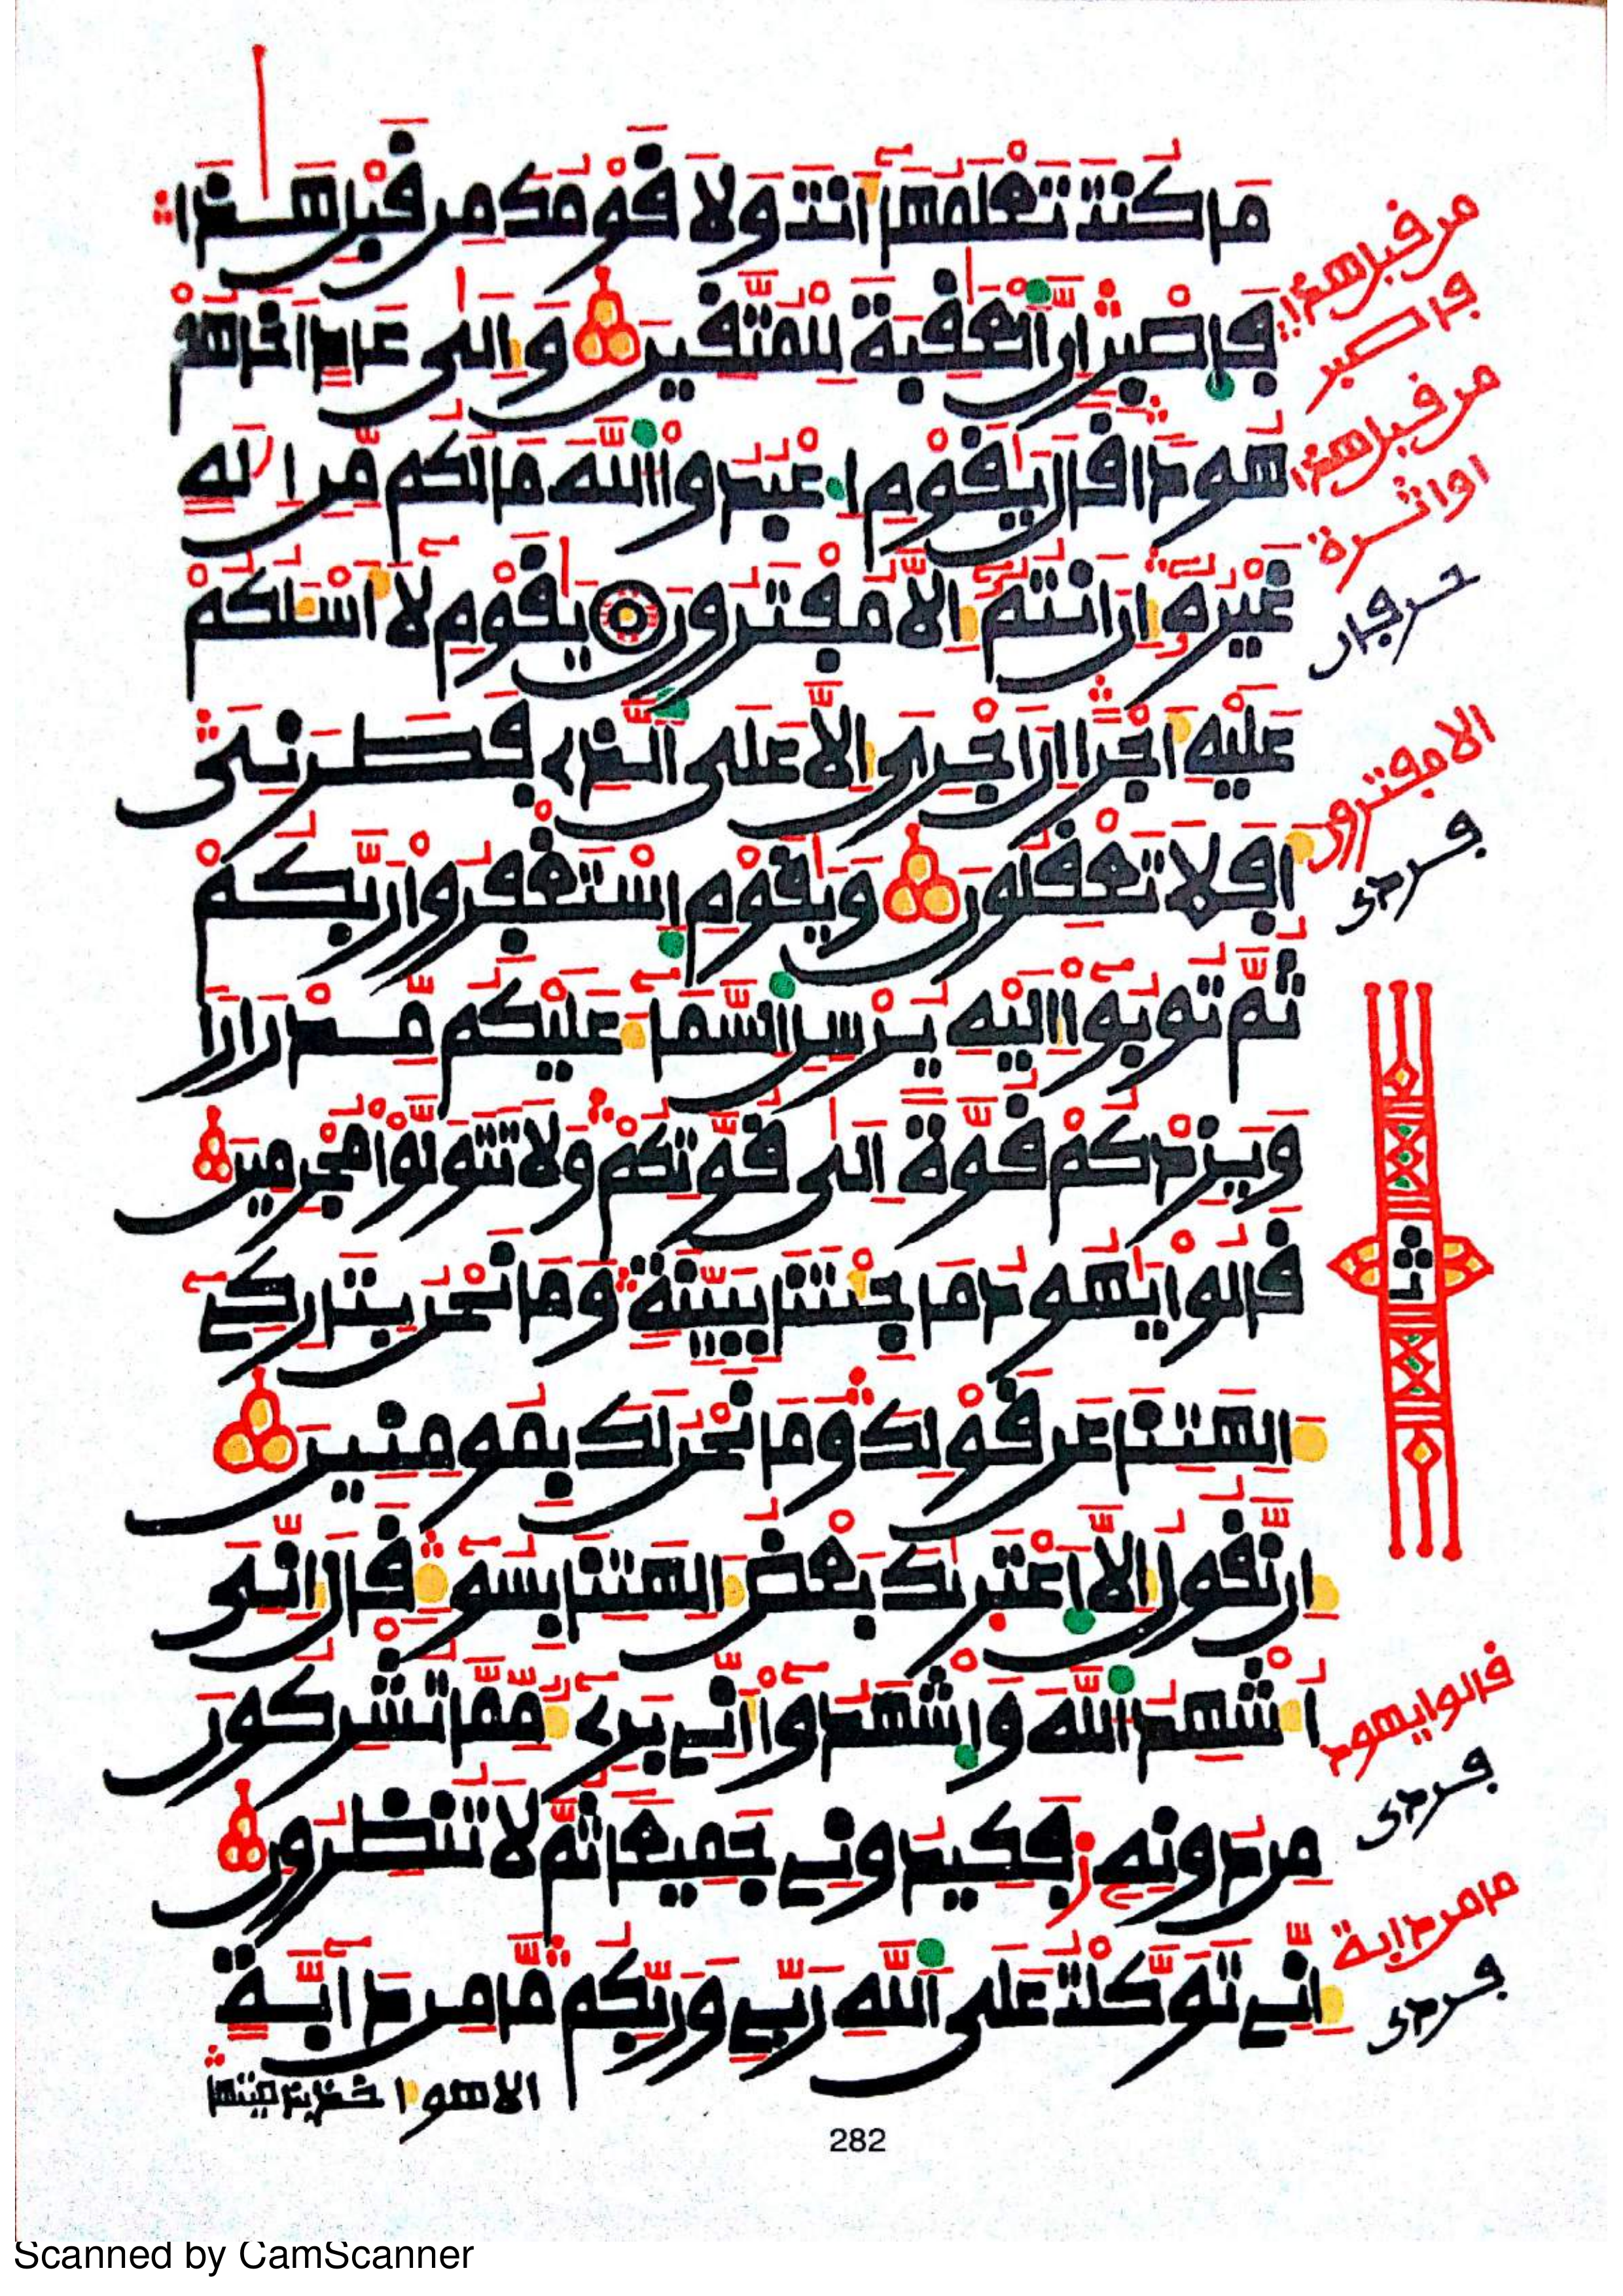 مَا كُنتَ تَعْلَمُهَآ أَنتَ وَلَا قَوْمُكَ مِن قَبْلِ هَٰذَا
فَاصْبِرْ إِنَّ الْعَٰقِبَةَ لِلْمُتَّقِينَ وَإِلَىٰ عَادٍ أَخَاهُمْ
هُودًا قَالَ يَٰقَوْمِ اعْبُدُوا اللَّهَ مَا لَكُم مِّنْ إِلَٰهٍ
غَيْرُهُ إِنْ أَنتُمْ إِلَّا مُفْتَرُونَ يَٰقَوْمِ لَآ أَسْـَٔلُكُمْ
عَلَيْهِ أَجْرًا إِنْ أَجْرِىَ إِلَّا عَلَى الَّذِى فَطَرَنِىَ
أَفَلَا تَعْقِلُونَ وَيَٰقَوْمِ اسْتَغْفِرُوا رَبَّكُمْ
ثُمَّ تُوبُوٓا إِلَيْهِ يُرْسِلِ السَّمَآءَ عَلَيْكُم مِّدْرَارًا
وَيَزِدْكُمْ قُوَّةً إِلَىٰ قُوَّتِكُمْ وَلَا تَتَوَلَّوْا مُجْرِمِينَ
قَالُوا يَٰهُودُ مَا جِئْتَنَا بِبَيِّنَةٍ وَمَا نَحْنُ بِتَارِكِىٓ
ءَالِهَتِنَا عَن قَوْلِكَ وَمَا نَحْنُ لَكَ بِمُومِنِينَ
إِن نَّقُولُ إِلَّا اعْتَرَىٰكَ بَعْضُ ءَالِهَتِنَا بِسُوٓءٍ قَالَ إِنِّىَ
أُشْهِدُ اللَّهَ وَاشْهَدُوٓا أَنِّى بَرِىٓءٌ مِّمَّا تُشْرِكُونَ
مِن دُونِهِ فَكِيدُونِى جَمِيعًا ثُمَّ لَا تُنظِرُونِ
إِنِّى تَوَكَّلْتُ عَلَى اللَّهِ رَبِّى وَرَبِّكُم مَّا مِن دَآبَّةٍ
الا هو اخذ بناصيتها
من قبل هذا
فاصبر
من قبل هذا
الا مفترون
فردى
ث
قالوا يهود
فردى
ما من دابة
فردى
282
Scanned by CamScanner